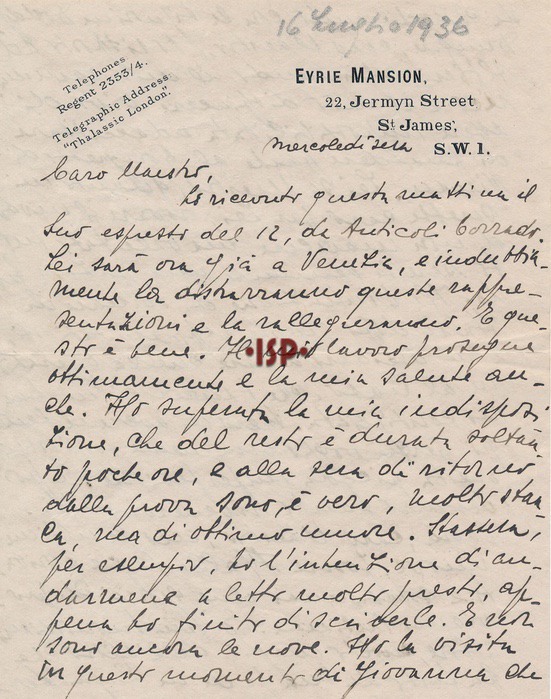 16 Luglio 1936
Telephones
Regent 2353/4.
Telegraphic Address
"Thalassic London."
EYRIE MANSION,
22, Jermyn Street
St James',
S.W.1.
mercoledì sera
Caro Maestro,
ho ricevuto questa mattina il
Suo espresso del 12, da Anticoli Corrado.
Lei sarà ora già a Venezia, e indubbia-
mente La distrarranno queste rappre-
sentazioni e La rallegreranno. E que-
sto è bene. Il mio lavoro prosegue
ISP
ottimamente e la mia salute an-
che. Ho superata la mia indisposi
zione, che del resto è durata soltan
to poche ore, e alla sera di ritorno
dalla prova sono, è vero, molto stan
ca, ma di ottimo umore. Stassera,
per esempio, ho l'intenzione di an-
darmene a letto molto presto, ap
pena ho finito di scriverle. E non
sono ancora le nove. Ho la visita
in questo momento di Giovanna che